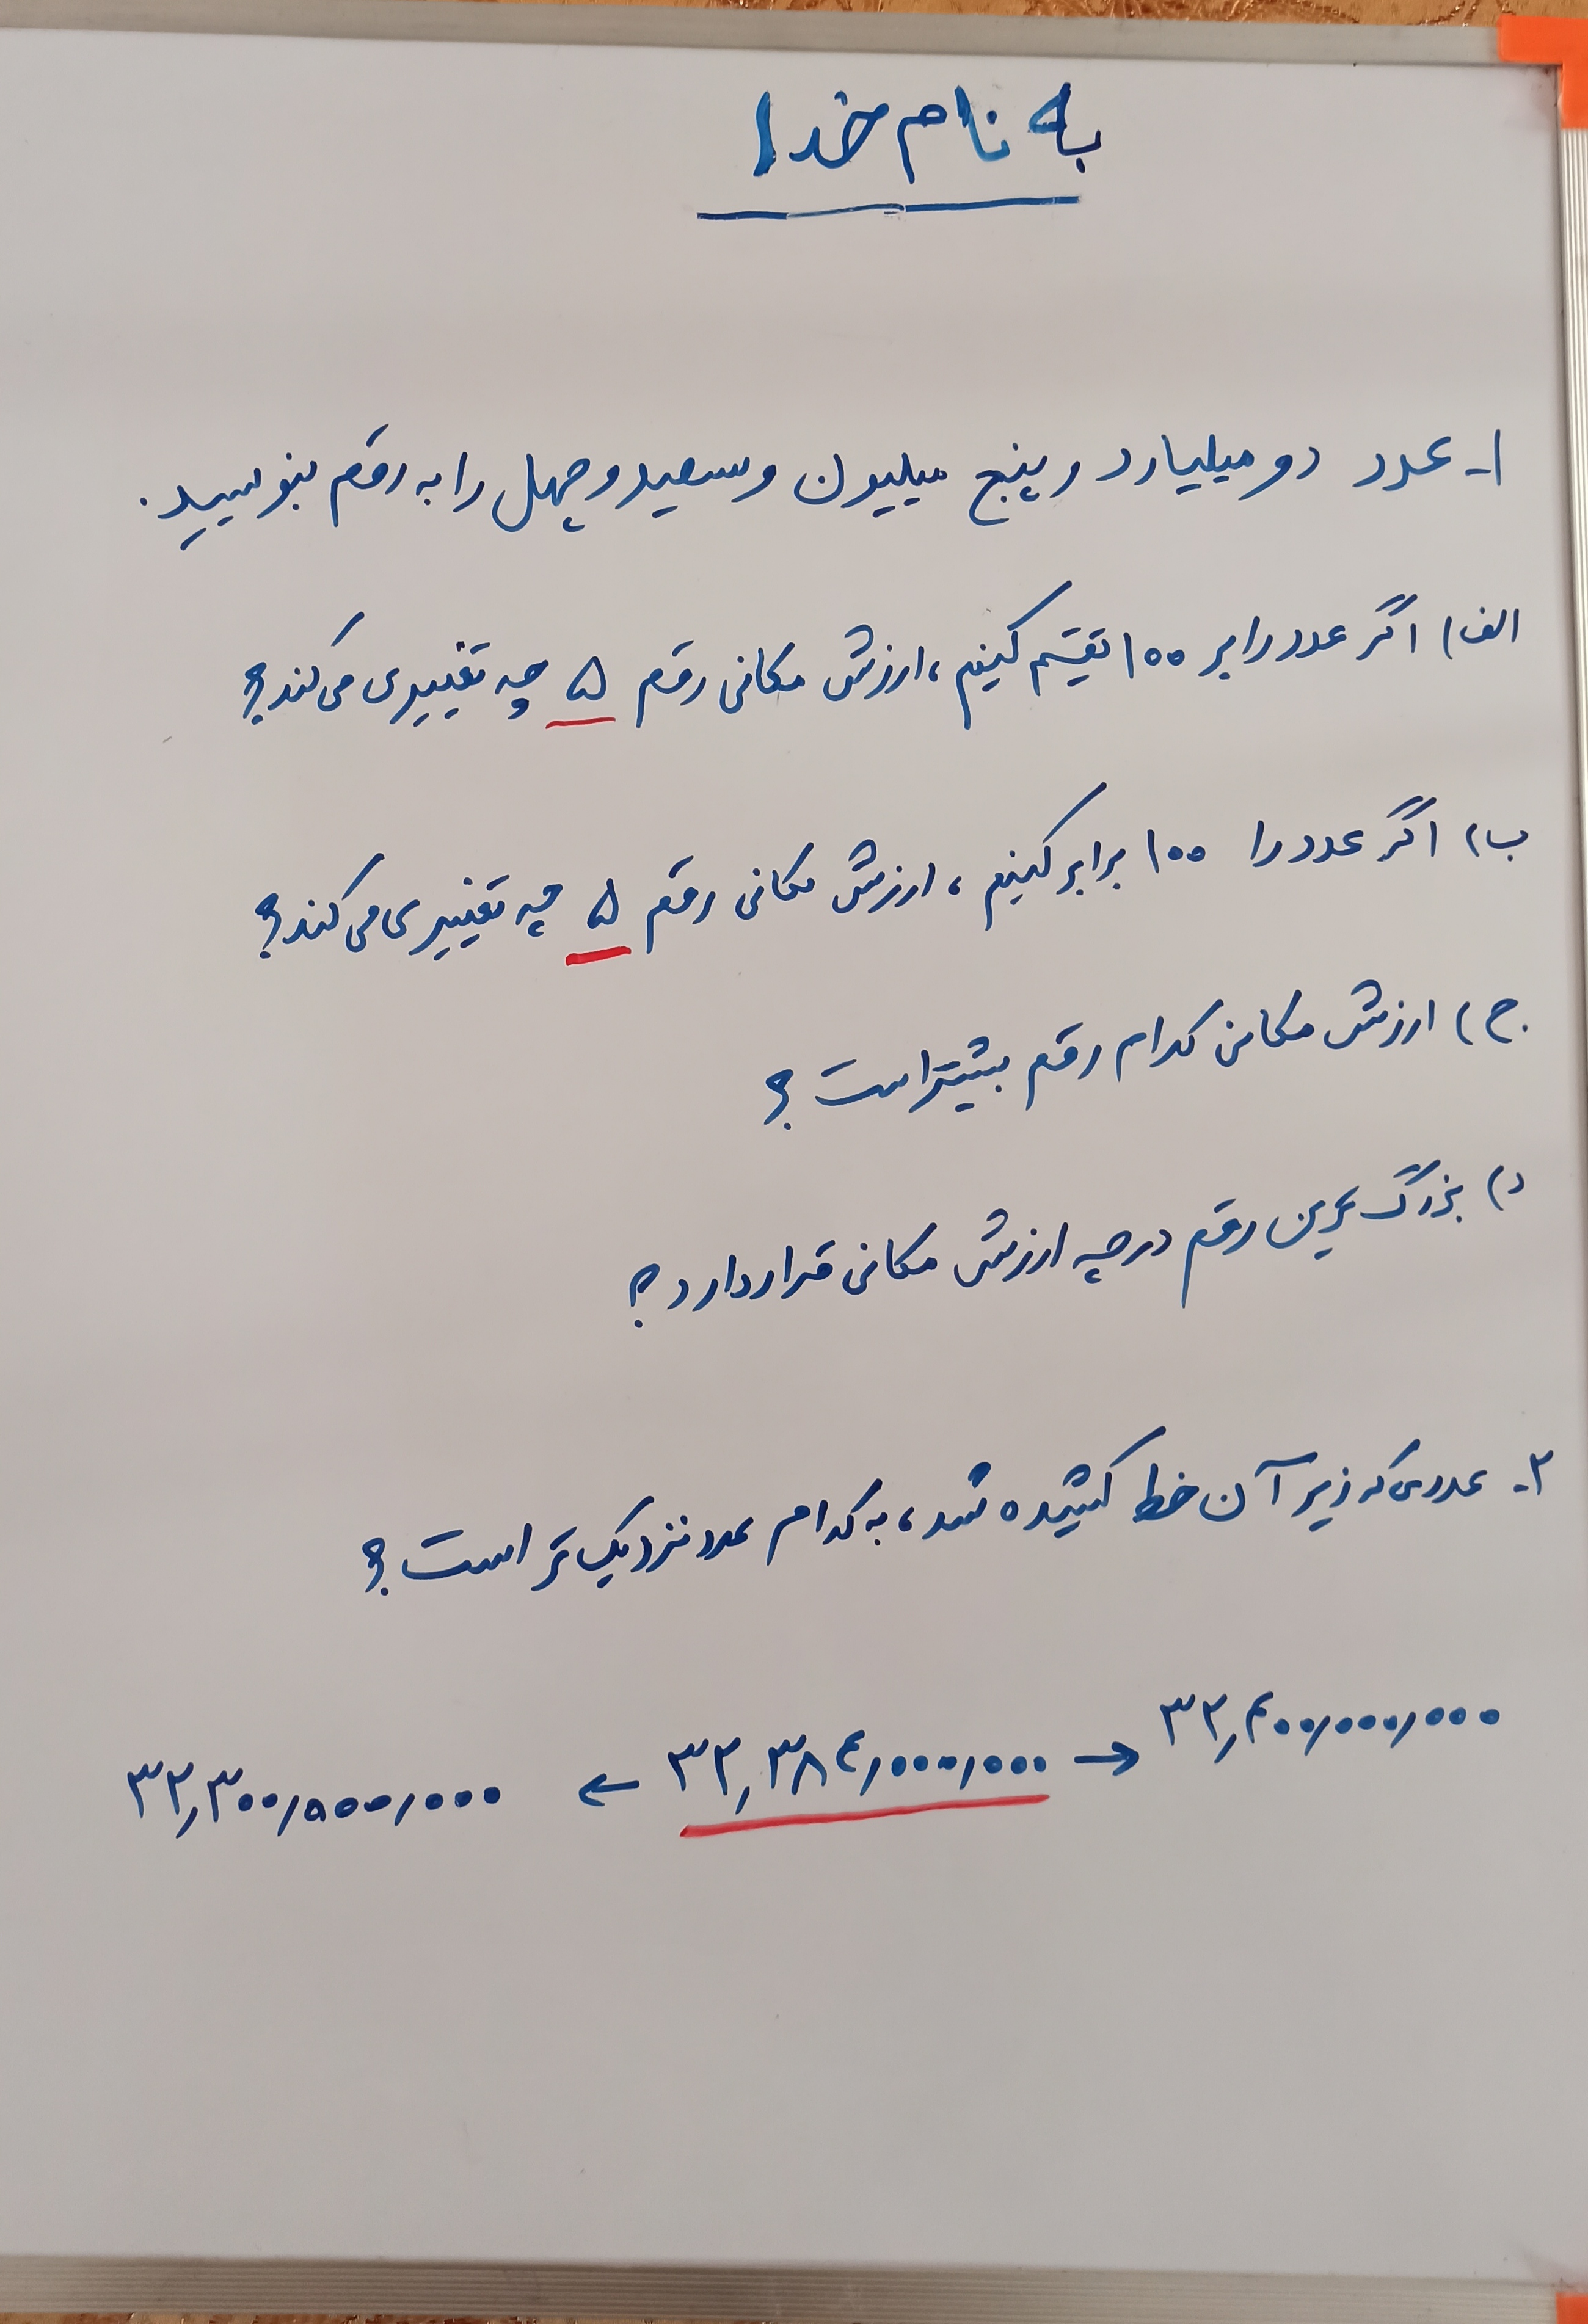 به نام خدا
۱- عدد دو میلیارد و پنج میلیون و سیصد و چهل را به رقم بنویسید.
الف) اگر عدد را بر ۱۰۰ تقسیم کنیم، ارزش مکانی رقم ۵ چه تغییری می‌کند؟
ب) اگر عدد را ۱۰۰ برابر کنیم، ارزش مکانی رقم ۵ چه تغییری می‌کند؟
ج) ارزش مکانی کدام رقم بیشتر است؟
د) بزرگ‌ترین رقم در چه ارزش مکانی قرار دارد؟
۲- عددی که زیر آن خط کشیده شد، به کدام عدد نزدیک‌تر است؟
۳۲,۳۰۰,۰۰۰,۰۰۰ ← ۳۲,۳۸۴,۰۰۰,۰۰۰ → ۳۲,۴۰۰,۰۰۰,۰۰۰